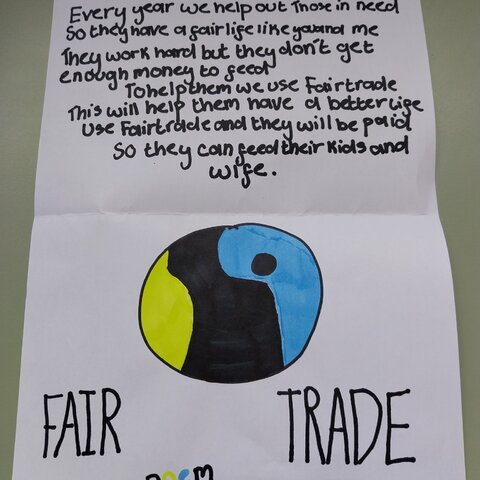 Every year we help out Those in need
So they have a fair life like you and me
They work hard but they don't get
enough money to feed
To help them we use Fairtrade
This will help them have a better life
Use Fairtrade and they will be paid
So they can feed their kids and
wife.
FAIR TRADE
POEM